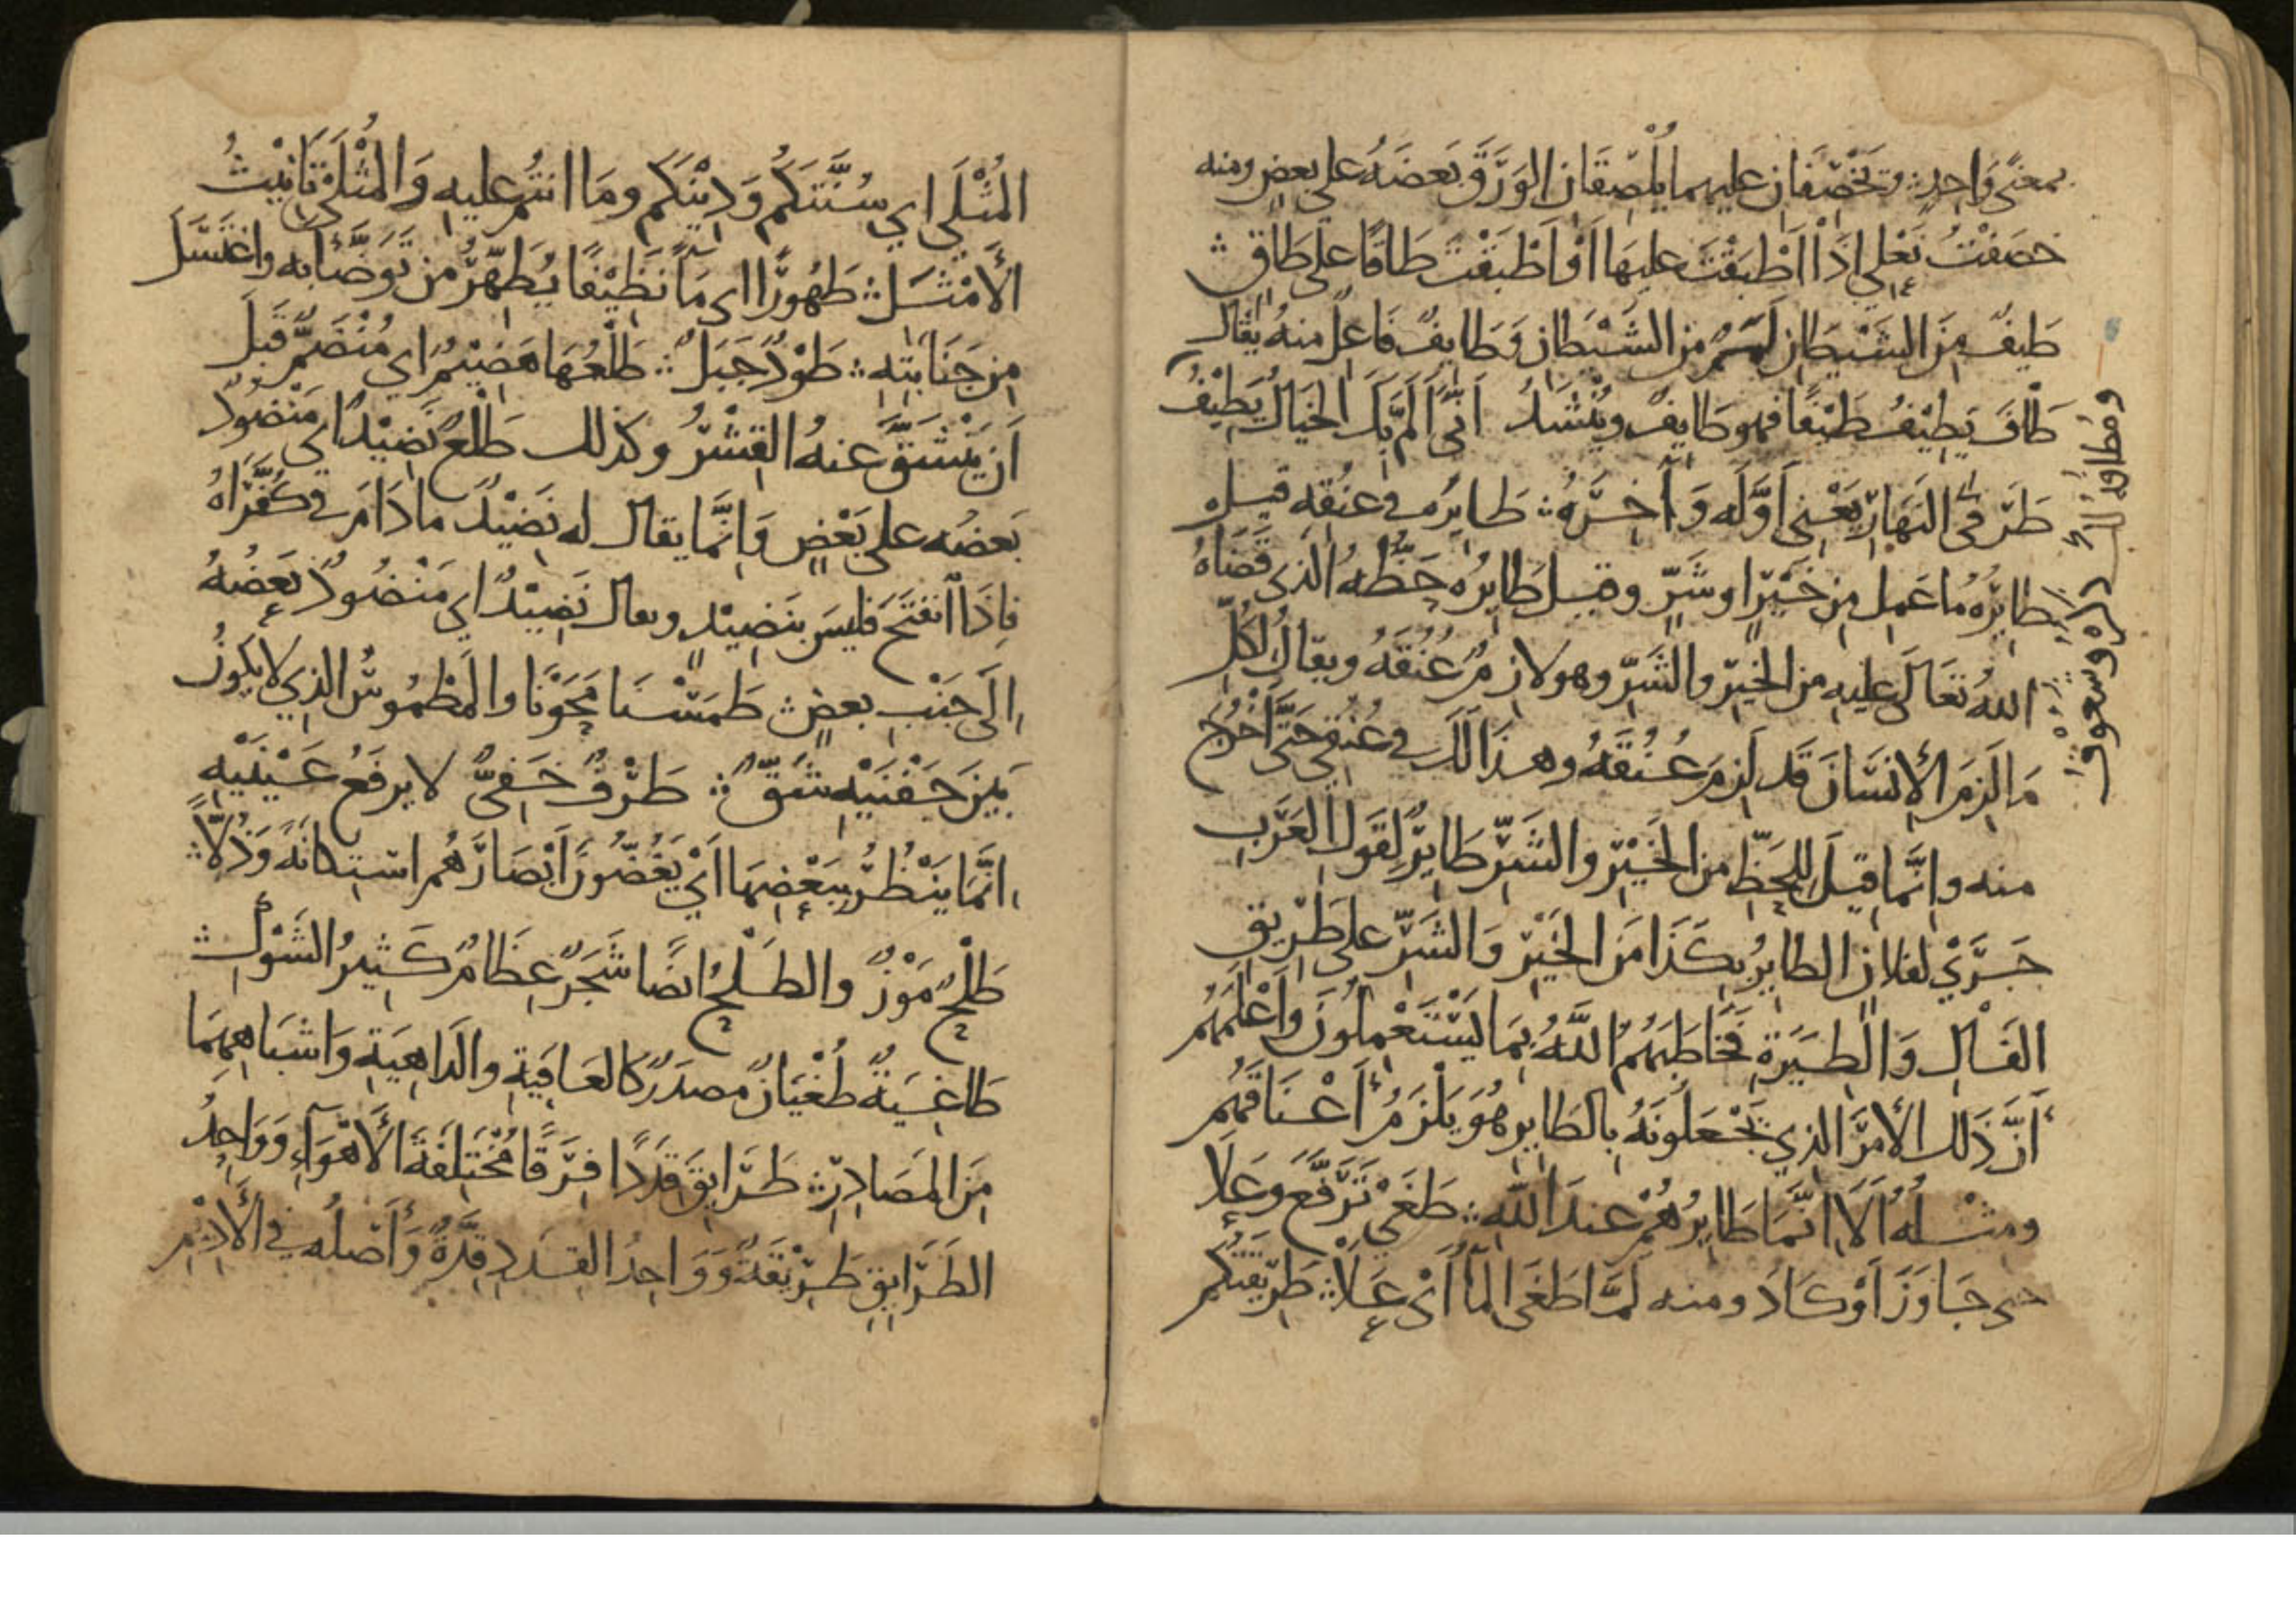 بمعنًى واحدٍ ؞ وتخصفان عليهما يُلصقان الورق بعضه على بعض ومنه
خصفتُ نعلي اذا اطبقت عليها او اطبقت طاقًا على طاقٍ ؞
طيفٌ من الشيطان لممٌ من الشيطان وطايفٌ فاعلٌ منه يقال
طاف يطيفُ طيفًا فهو طايفٌ ويُنشدُ انّى المّ بك الخيال يطيفُ
ومطافه لك ذكرة وشعوف
طرفي النهار يعني اوله وآخره ؞ طايره في عنقه قيل
طايره ما عمل من خيرٍ او شرٍّ وقيل طايره حظّه الذي قضاه
الله تعالى عليه من الخير والشر وهو لازمٌ عُنُقَه ويقال لكلّ
ما لزم الإنسان قد لزم عُنُقَه وهذا لك في عُنُقي حتى اخرج
منه وإنّما قيل للحظّ من الخير والشرّ طايرٌ لقول العرب
جرى لفلانٍ الطاير بكذا من الخير والشر على طريق
الفال والطيرة فخاطبهم الله بما يستعملون واعلمهم
أنّ ذلك الأمر الذي يجعلونه بالطاير هو يلزم أعناقهم
ومثله ألا انّما طايرهم عند الله ؞ طغى ترفّع وعلا
حتى جاوز أو كاد ومنه لمّا طغى الما أي علا ؞ طريقتكم
المُثلى اي سُنّتكم ودينكم وما انتم عليه والمثلى تانيثُ
الأمثل ؞ طهورًا اي مآ نظيفًا يُطهّر من توضّأ به واغتسل
من جنابته ؞ طودٌ جبلٌ ؞ طلعها هضيمٌ اي منضمٌّ قبل
أن ينشقّ عنه القشر وكذلك طلعٌ نضيدٌ اي منضود
بعضه على بعض وإنّما يقال له نضيد ما دام في كفرّاه
فإذا انفتح فليس بنضيدٍ ويقال نضيدٌ اي منضودٌ بعضه
إلى جنب بعض ؞ طمسنا محونا والمطموس الذي لا يكون
بين جفنيه شقّ ؞ طرفٌ خفيٌّ لا يرفع عينيه
إنّما ينظر ببعضها أي يغضّون أبصارهم استكانةً وذُلّاً ؞
طلحٌ موزٌ والطلح ايضًا شجرٌ عظامٌ كثير الشوك ؞
طاغيةٌ طغيانٌ مصدرٌ كالعافية والداهية واشباههما
من المصادر ؞ طرايق قددًا فرقًا مختلفة الأهوآء وواحدُ
الطرايق طريقةٌ وواحد القدد قدّةٌ وأصله في الأديم